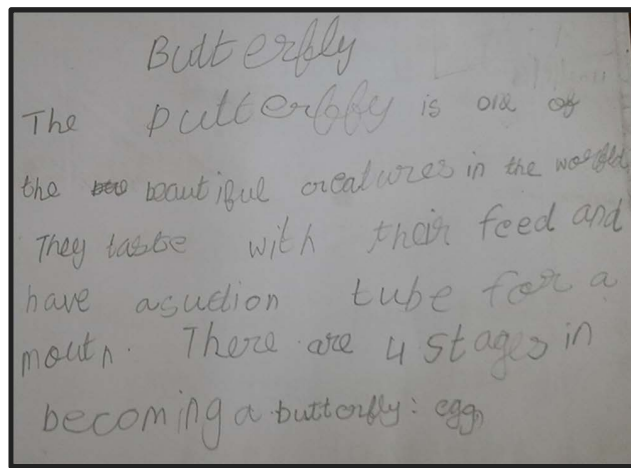 Butterfly
The putterbfy is one of
the beautiful creatures in the woefld
They taste with their feed and
have a suction tube for a
mouth. There are 4 stages in
becoming a butterfly: egg,